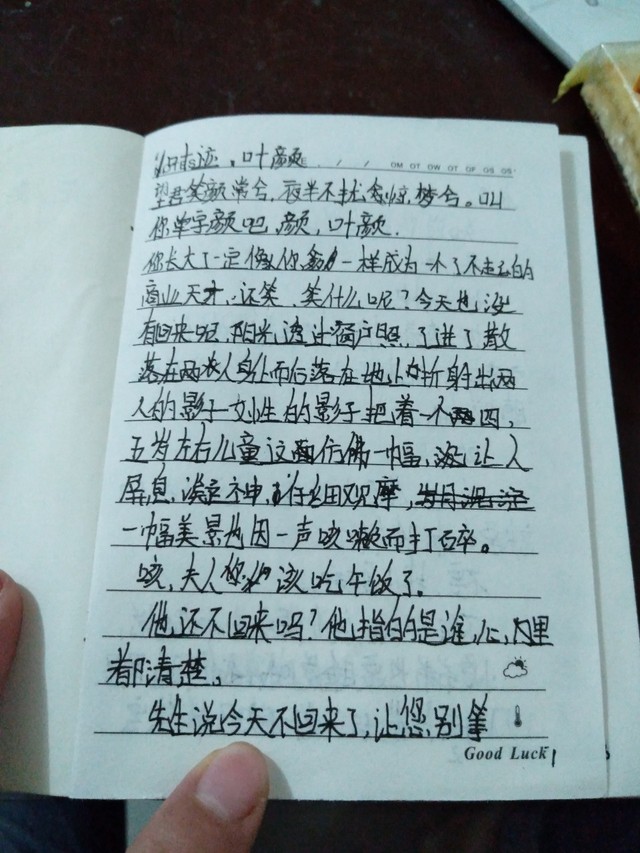 叶颜
OM OT OW OT OF OS OS
望君笑颜常兮,夜半不扰惊梦兮。叫
你单字颜吧,颜,叶颜.
你长大了一定像你一样成为一个了不起的
商业天才,还笑,笑什么呢?今天也没
有回来呢,阳光透过窗户照,了进了散
落在两人身上而后落在地上折射出两
人的影子一女生的影子把着一个四,
五岁左右儿童这画仿佛一幅,让人
屏息,凝神,仔细观摩,岁月
一幅美景均因一声咳嗽而打碎。
咳,夫人您们该吃午饭了.
他还不回来吗?他指的是谁,心里
都清楚。
先生说今天不回来了,让您别等
Good Luck